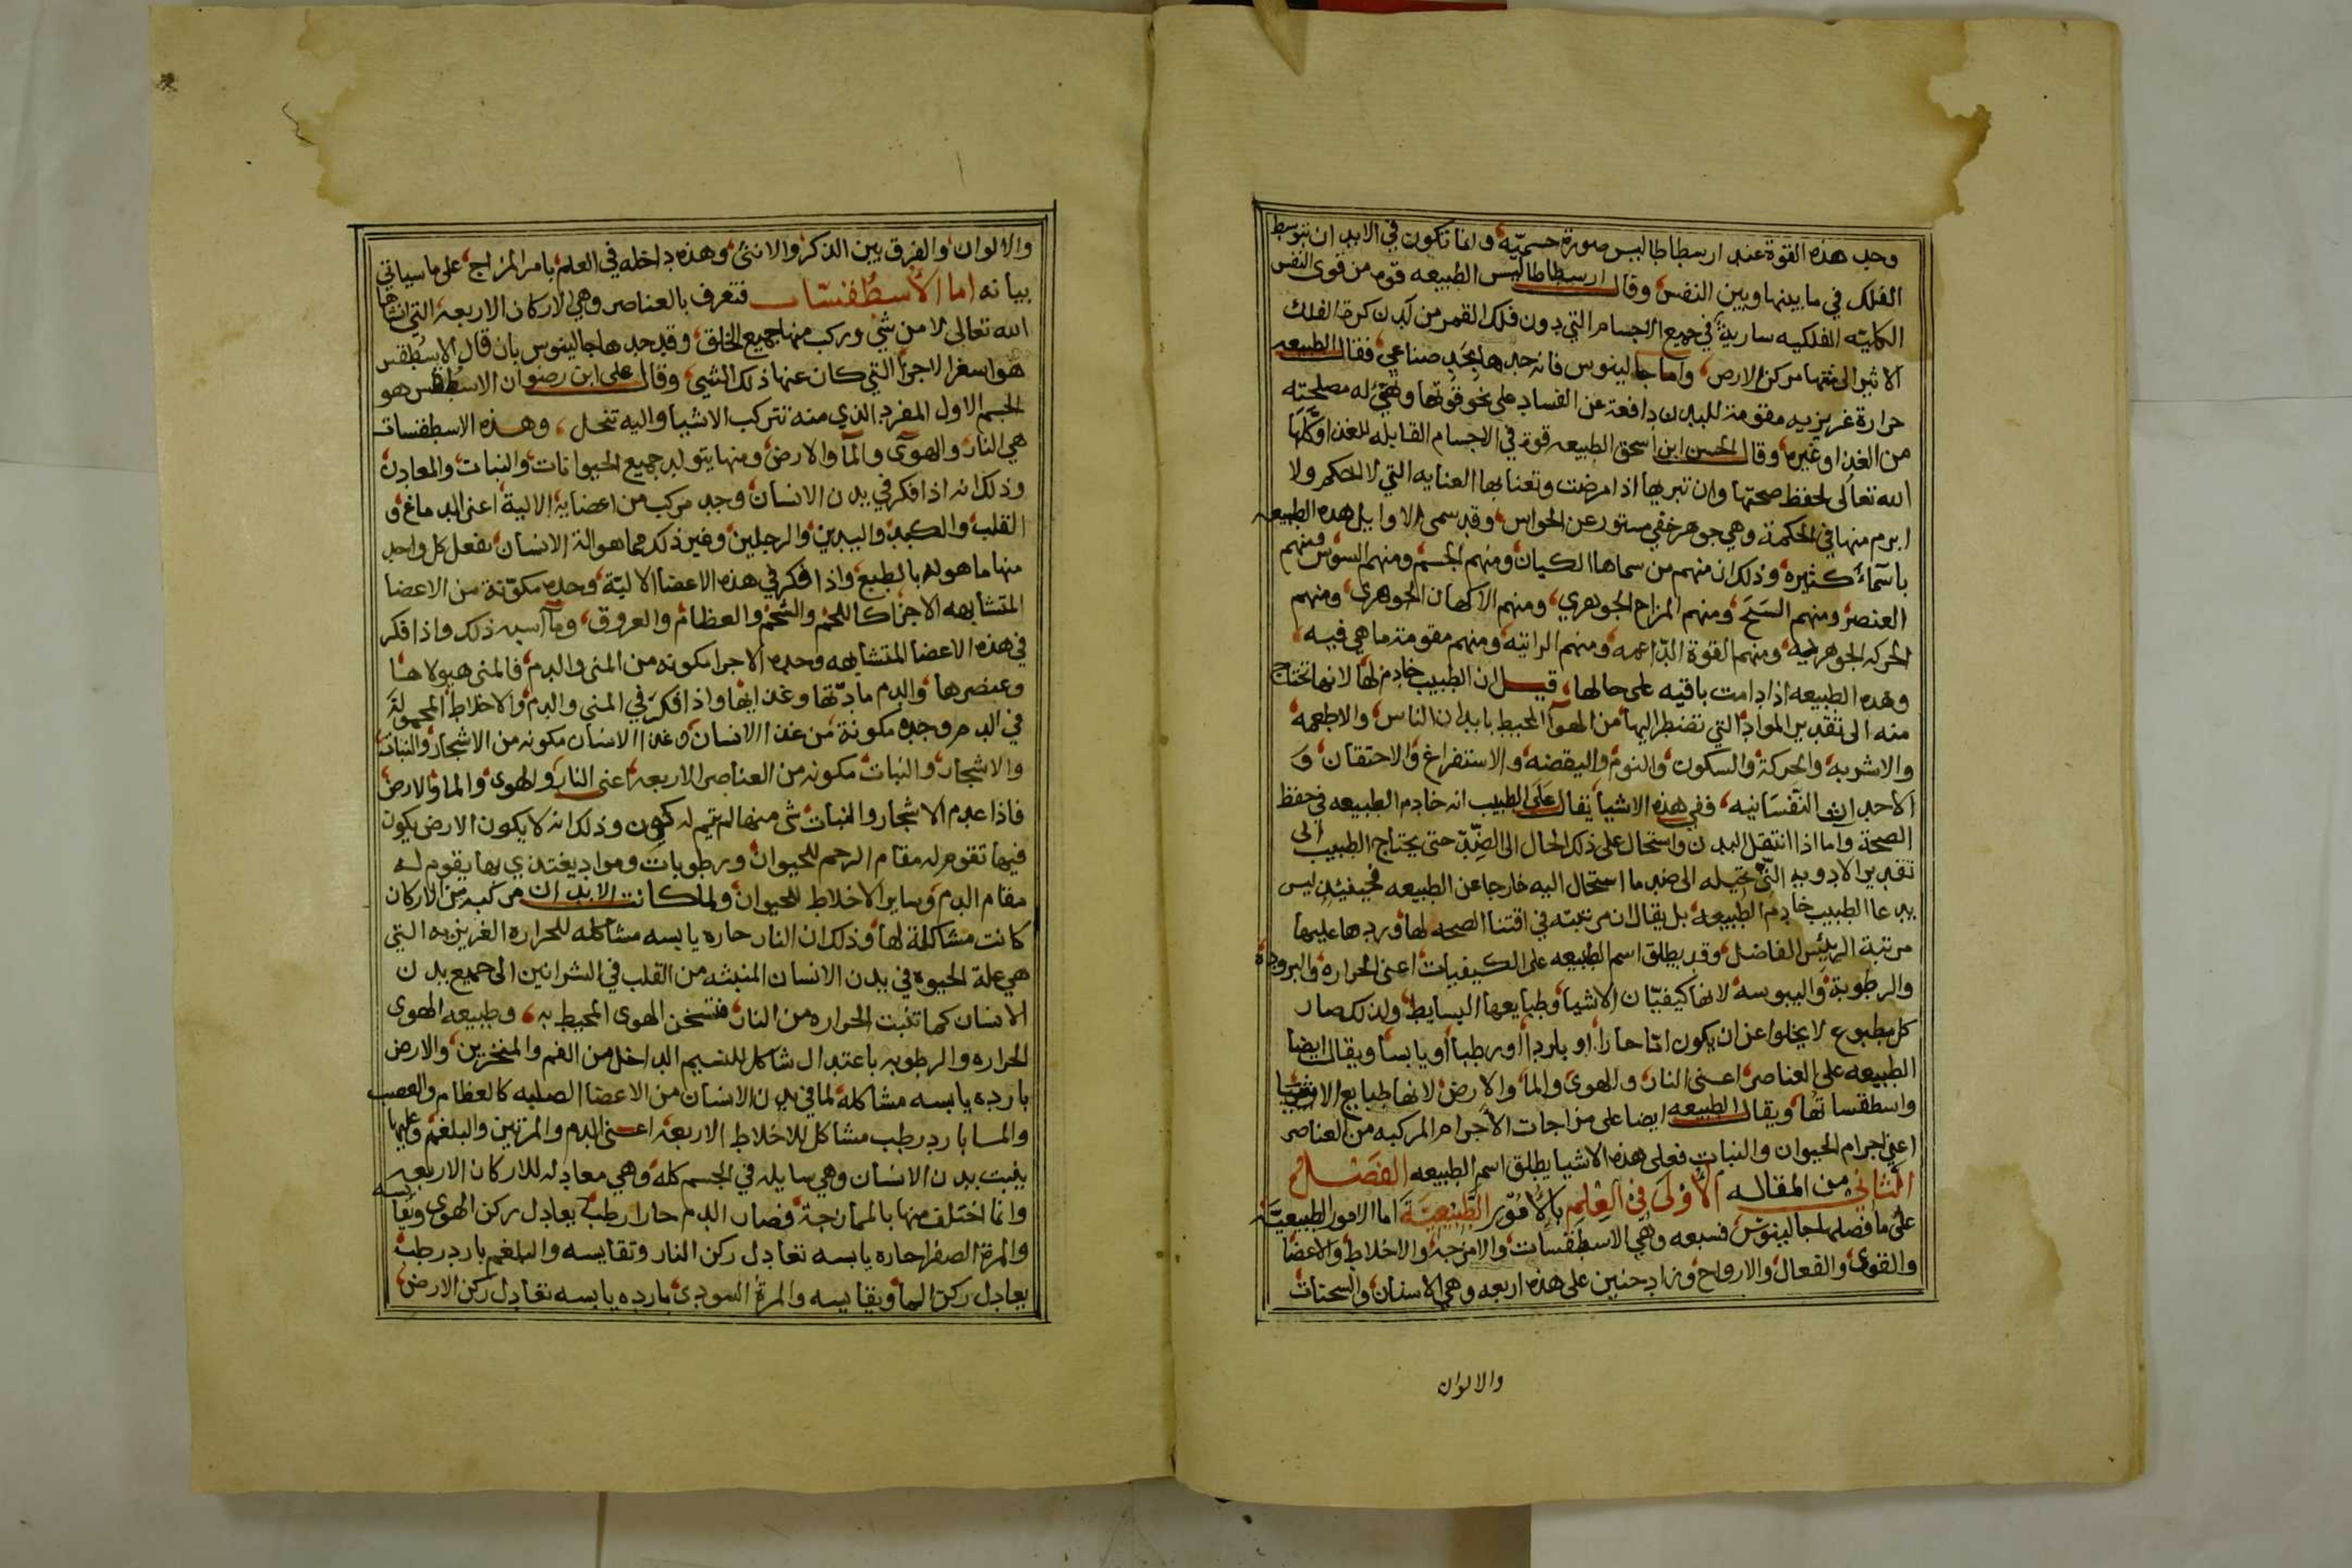 وحد هذه القوة عند ارسطاطاليس صورة جسميّه ولما تكون في الابدان بتوسط
الفلك في ما بينها وبين النفس وقال ارسطاطاليس الطبيعه قوه من قوى النفس
الكليّه الفلكيه سارية في جميع الاجسام التي دون فلك القمر من لدن كرة الفلك
الاثير الى منتها مركز الارض واما جالينوس فانه حدها بحد صناعي فقال الطبيعه
حرارة غريزيه مقومة للبدن دافعة عن الفساد على نحو قوتها وتهيّ له مصلحته
من الغذا وغيره وقال الحسن ابن اسحق الطبيعه قوة في الاجسام القابله للغذا وكّلها
الله تعالى لحفظ صحتها وان تبريها اذا مرضت وتعنا بها العنايه التي لا احكم ولا
ابرم منها في الحكمة وهي جوهر خفي مستور عن الحواس وقد سمى الاوايل هده الطبيعه
باسماء كثيره وذلك ان منهم من سماها الكيان ومنهم الجسم ومنهم السوس ومنهم
العنصر ومنهم السنخ ومنهم المزاج الجوهري ومنهم الاكهان الجوهري ومنهم
الحركه الجوهريه ومنهم القوة الدّاعمه ومنهم الراتبه ومنهم مقومة ما هي فيه
وهده الطبيعه اذا دامت باقيه على حالها قيل ان الطبيب خادم لها لانها تحتاج
منه الى تقدير المواد التي تضطر اليها من الهوا المحيط بابدان الناس والاطعمه
والاشربه والحركة والسكون والنوم واليقضه والاستفراغ والاحتقان و
الاحداث النفسانيه ففي هذه الاشيا يقال على الطبيب انه خادم الطبيعه في حفظ
الصحة واما اذا انتقل البدن واستحال على ذلك الحال الى الضدّ حتى يحتاج الطبيب الى
تقدير الادويه التي تحيله الى ضد ما استحال اليه خارجا عن الطبيعه فحينئذ ليس
يدعا الطبيب خادم الطبيعه بل يقال ان مرتبته في اقتنا الصحه لها وردها عليها
مرتبة الريّس الفاضل وقد يطلق اسم الطبيعه على الكيفيات اعني الحراره والبروده
والرطوبة واليبوسه لانها كيفيّات الاشيا وطبايعها البسايط ولذلك صار
كل مطبوع لا يخلوا عن ان يكون امّا حارا او باردا او رطبا او يابسا ويقال ايضا
الطبيعه على العناصر اعني النار والهوى والما والارض لانها طبايع الاشيا
واسطقساتها ويقال الطبيعه ايضا على مزاجات الاجرام المركبه من العناصر
اعني اجرام الحيوان والنبات فعلى هذه الاشيا يطلق اسم الطبيعه الفصل
الثاني من المقاله الاولى في العلم بالامور الطّبيعيّة اما الامور الطبيعيّه
على ما فصلها جالينوس فسبعه وهي الاسطقسات والامزجه والاخلاط والاعضا
والقوى والفعال والارواح وزاد حنين على هذه اربعه وهي الاسنان والسحنات
والالوان
والالوان والفرق بين الذكر والانثى وهذه داخله في العلم بامر المزاج على ما سياتي
بيانه اما الاسطقسات فتعرف بالعناصر وهي الاركان الاربعه التي انشاها
الله تعالى لا من شي وركب منها جميع الخلق وقد حدها جالينوس بان قال الاسطقس
هو اسغر الاجزا التي كان عنها ذلك الشي وقال على ابن رضوان الاسطقس هو
الجسم الاول المفرد الذي منه تتركب الاشيا واليه تنحل وهذه الاسطقسات
هي النار والهوآى والمآ والارض ومنها يتولد جميع الحيوانات والنبات والمعادن
وذلك انه اذا فكر في بدن الانسان وجد مركب من اعضايه الالية اعنى الدماغ و
القلب والكبد واليدين والرجلين وغير ذلك مما هو الة الانسان بفعل كل واحد
منها ما هو له بالطبع واذا فكر في هذه الاعضا الاليّة وحده مكوّنة من الاعضا
المتشابهه الاجزا كاللحم والشحم والعظام والعروق وما اسبه ذلك واذا فكر
في هذه الاعضا المتشابهه وحده الاجرا مكونه من المنى والدم فالمنى هيولاها
وعنصرها والدم مادّتها وغذايها واذا فكر في المني والدم والاخلاط المحمولة
في الدم وجده مكونة من غذا الانسان وغذا الانسان مكونه من الاشجار والنبات
والاشجار والنبات مكونه من العناصر الاربعه اعنى النار والهوى والما والارض
فاذا عدم الاشجار والنبات شى منها لم يتم له كون وذلك انه لا يكون الارض يكون
فيها تقوم له مقام الرحم للحيوان ورطوبات ومواد يغتدي بها يقوم له
مقام الدم وساير الاخلاط للحيوان ولما كانت الابدان مركبه من الاركان
كانت مشاكلة لها وذلك ان النار حاره يابسه مشاكله للحراره الغريزيه التي
هي علة الحيوه في بدن الانسان المنبثه من القلب في الشرانين الى جميع بدن
الانسان كما تنبت الحراره من النار فتسخن الهوى المحيط به وطبيعه الهوى
الحراره والرطوبه باعتدال شاكل للنسيم الداخل من الفم والمنخرين والارض
بارده يابسه مشاكلة لما في بدن الانسان من الاعضا الصلبه كالعظام والعصب
والما بارد رطب مشاكل للاخلاط الاربعه اعنى الدم والمرتين والبلغم وعليها
ينبت بدن الانسان وهي سايله في الجسم كله وهي معادله للاركان الاربعه
وانما اختلف منها بالممازجة فصار الدم حار رطب يعادل ركن الهوى ويقايسه
والمرة الصفرا حاره يابسه تعادل ركن النار وتقايسه والبلغم بارد رطب
يعادل ركن الما ويقايسه والمرة السودى بارده يابسه تعادل ركن الارض